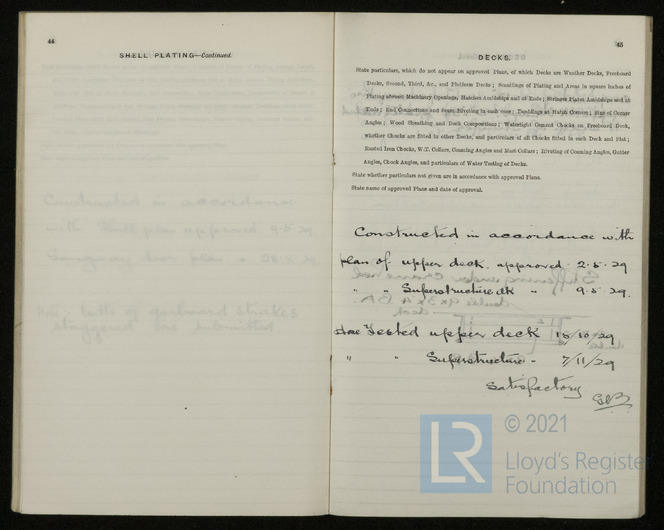 44
SHELL PLATING—Continued.
Constructed in accordance
with Shell plan approved 9.5.29
Note:- butts of garboard strakes
staggered
submitted
45
DECKS.
State particulars, which do not appear on approved Plans, of which Decks are Weather Decks, Freeboard
Decks, Second, Third, &c., and Platform Decks; Scantlings of Plating and Areas in square inches of
Plating abreast Machinery Openings, Hatches Amidships and at Ends; Stringer Plates Amidships and at
Ends; End Connections and Seam Riveting in each case; Doublings at Hatch Corners; Size of Corner
Angles; Wood Sheathing and Deck Compositions; Watertight Cement Chocks on Freeboard Deck,
whether Chocks are fitted to other Decks, and particulars of all Chocks fitted in each Deck and Flat;
Rusted Iron Chocks, W.T. Collars, Coaming Angles and Mast Collars; Riveting of Coaming Angles, Gutter
Angles, Chock Angles, and particulars of Water Testing of Decks.
State whether particulars not given are in accordance with approved Plans.
State name of approved Plan and date of approval.
Constructed in accordance with
plan of upper deck approved 2.5.29
" " Superstructure dk " 9.5.29.
Tested upper deck 15/10/29
" " Superstructure - 7/11/29
Satisfactory
LR
© 2021
Lloyd's Register
Foundation